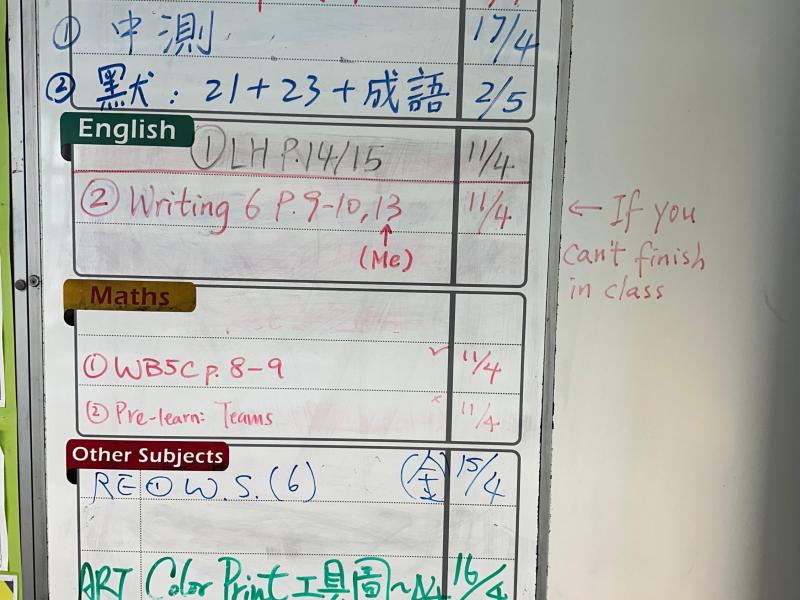 ① 中測 17/4
② 默: 21+23+成語 2/5
English
① LH P.14/15 11/4
② Writing 6 P.9-10, 13 11/4
(Me)
← If you
can't finish
in class
Maths
① WB5C p. 8-9 ✓ 11/4
② Pre-learn: Teams × 11/4
Other Subjects
RE ① W.S.(6) (金) 15/4
ART Color Print 工具圖~A4 16/4